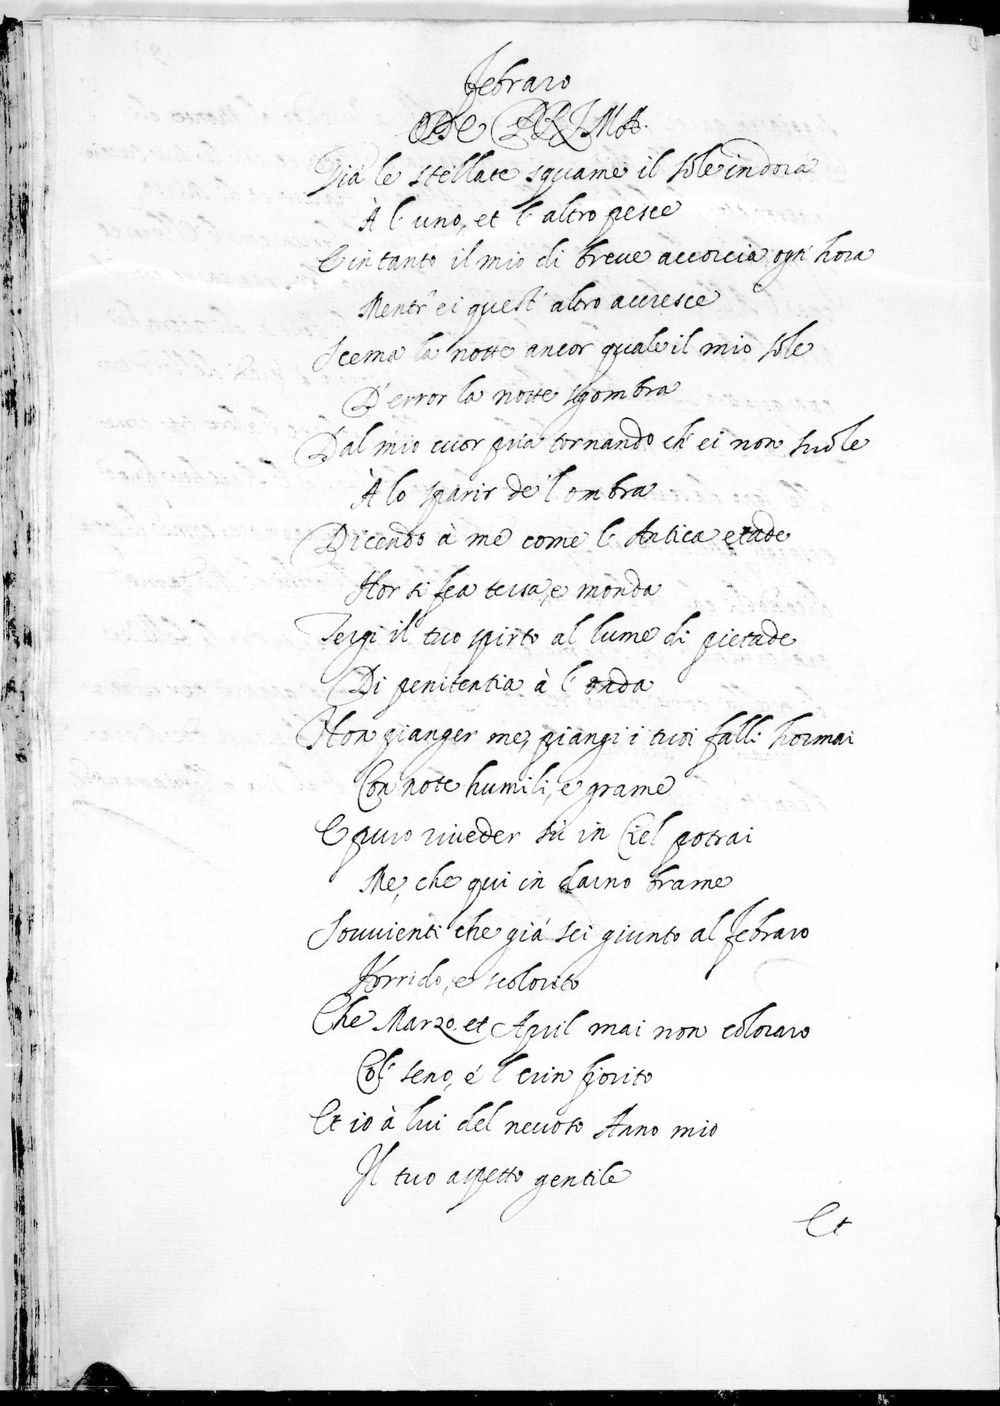 Febraro
ODE PRIMA.
Già le stellate squame il sole indora
À l'uno, et l'altro pesce
E in tanto il mio di breve accorcia ogn'hora
Mentr'ei quest'altro accresce
Scema la notte ancor quale il mio sole
D'error la notte sgombra
Dal mio cuor pria tornando ch'ei non suole
À lo sparir de l'ombra
Dicendo à me come l'Antica etade
Hor si fea tersa, e monda
Tergi il tuo spirto al lume di pietade
Di penitentia à l'onda
Non pianger me, piangi i tuoi falli hormai
Con note humili, e grame
E puro riveder sù in Ciel potrai
Me, che qui in darno brame
Souvienti che già sei giunto al Febraro
Horrido, e scolorito
Che Marzo et April mai non coloraro
Col seno, é l crin fiorito
Et io à lui del nevoso Anno mio
Il tuo aspetto gentile
Et